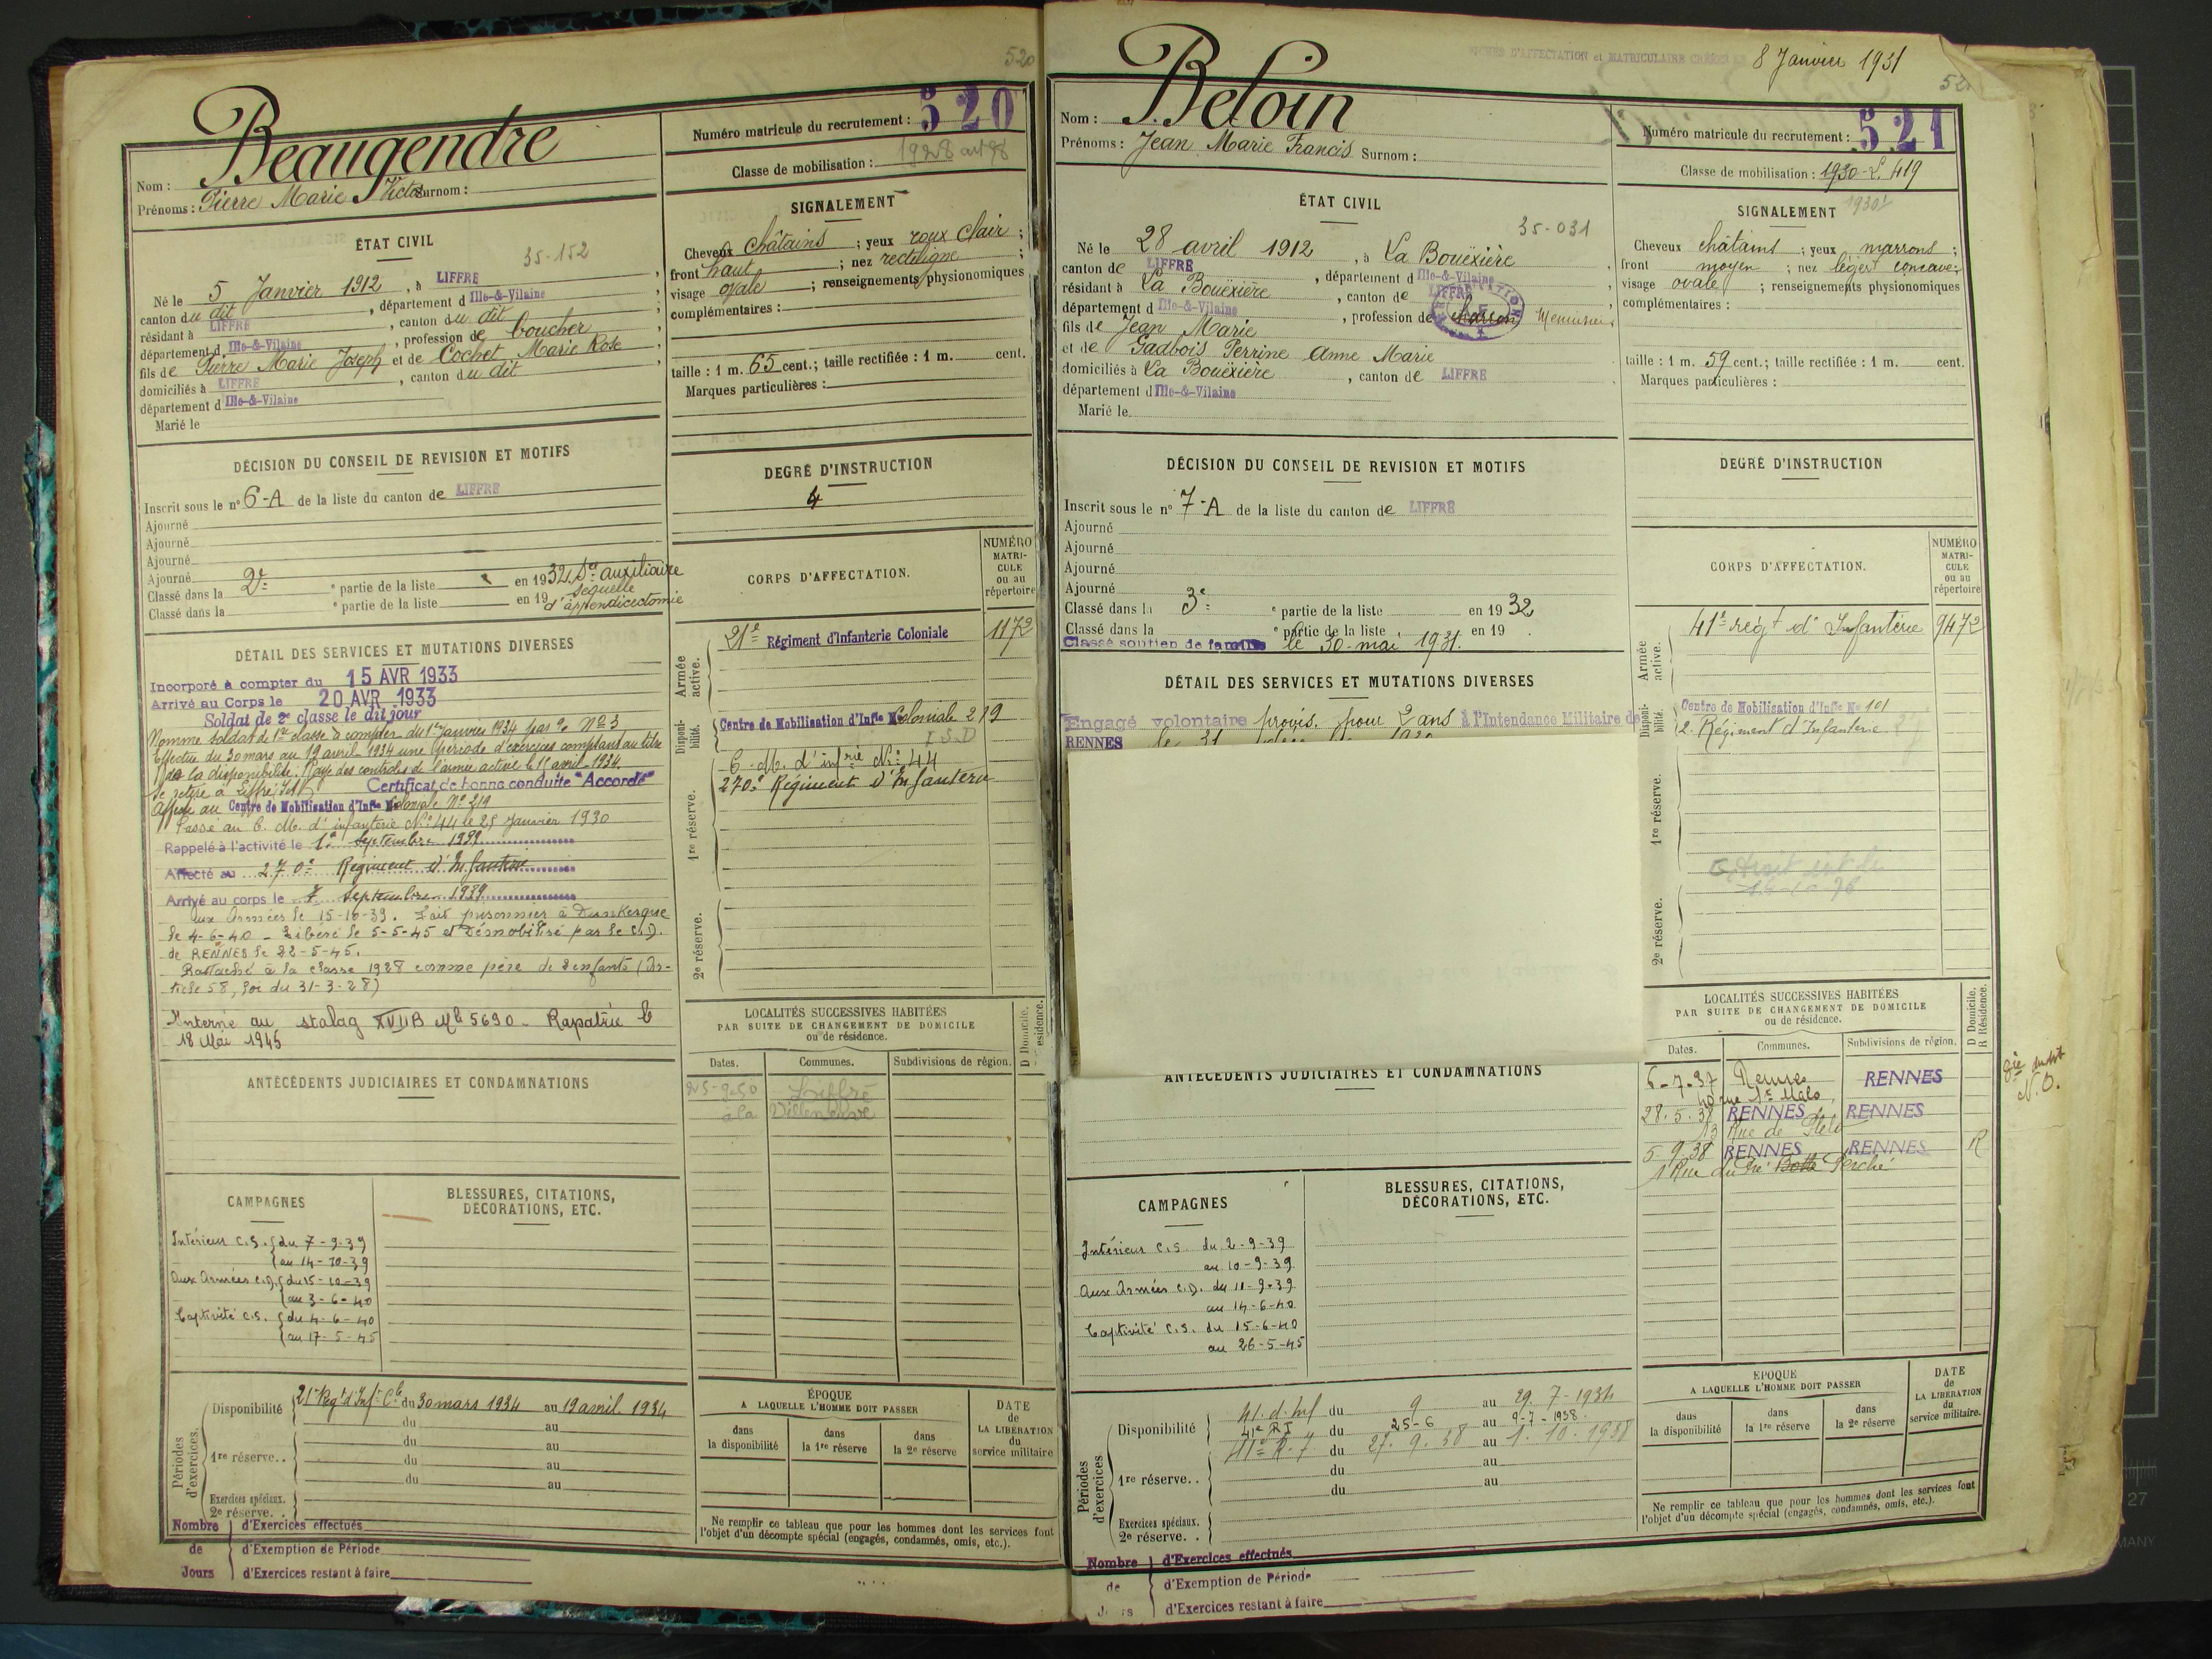 520
Beaugendre
Nom :
Prénoms : Pierre Marie Victor Surnom :
Numéro matricule du recrutement : 520
Classe de mobilisation : 1928 art 58
ÉTAT CIVIL
35-152
Né le 5 Janvier 1912, à LIFFRE,
canton du dit, département d Ille-&-Vilaine
résidant à LIFFRE, canton du dit
département d Ille-&-Vilaine, profession de boucher
fils de Pierre Marie Joseph et de Cochet Marie Rose
domiciliés à LIFFRE, canton du dit
département d Ille-&-Vilaine
Marié le
SIGNALEMENT
Cheveux châtains ; yeux roux clair ;
front haut ; nez rectiligne ;
visage ovale ; renseignements physionomiques
complémentaires :
taille : 1 m. 65 cent.; taille rectifiée : 1 m. cent.
Marques particulières :
DÉCISION DU CONSEIL DE REVISION ET MOTIFS
Inscrit sous le n° 6-A de la liste du canton de LIFFRE
Ajourné
Ajourné
Ajourné
Ajourné
Classé dans la 2e partie de la liste en 1932 Sce auxiliaire
Classé dans la e partie de la liste en 19 séquelle
d'appendicectomie
DEGRÉ D'INSTRUCTION
4
DÉTAIL DES SERVICES ET MUTATIONS DIVERSES
Incorporé à compter du 15 AVR 1933
Arrivé au Corps le 20 AVR 1933
Soldat de 2e classe le dit jour
Nommé soldat de 1re classe à compter du 1er Janvier 1934 par o. No 3
Effectue du 30 mars au 19 avril 1934 une période d'exercices comptant au titre
de la disponibilité. Rayé des contrôles de l'armée active le 15 avril 1934.
Se retire à Liffré Certificat de bonne conduite "Accordé"
Affecté au Centre de Mobilisation d'Infie Coloniale No 219
Passé au C. M. d'infanterie No 44 le 25 Janvier 1930
Rappelé à l'activité le 1er Septembre 1939
Affecté au 270e Régiment d'Infanterie
Arrivé au corps le 7 Septembre 1939
Aux Armées le 15-10-39. Fait prisonnier à Dunkerque
le 4-6-40 - Libéré le 5-5-45 et Démobilisé par le C.D.
de RENNES le 22-5-45.
Rattaché à la classe 1928 comme père de 2 enfants (Ar-
ticle 58, loi du 31-3-28)
Interné au stalag XVIIB Mle 5690 - Rapatrié le
18 Mai 1945
CORPS D'AFFECTATION.
NUMÉRO MATRICULE ou au répertoire
Armée active.
21e Régiment d'Infanterie Coloniale 1172
Disponibilité.
Centre de Mobilisation d'Infie Coloniale 219
I S D
1re réserve.
C. M. d'infrie No 44
270e Régiment d'Infanterie
2e réserve.
LOCALITÉS SUCCESSIVES HABITÉES
PAR SUITE DE CHANGEMENT DE DOMICILE
ou de résidence.
Dates. Communes. Subdivisions de région. D Domicile. Résidence.
25-9-50 Liffré
à la Villeneuve
ANTÉCÉDENTS JUDICIAIRES ET CONDAMNATIONS
CAMPAGNES
BLESSURES, CITATIONS,
DÉCORATIONS, ETC.
Intérieur C.S. du 7-9-39
au 14-10-39
Aux Armées C.D. du 15-10-39
au 3-6-40
Captivité C.S. du 4-6-40
au 17-5-45
Périodes d'exercices.
Disponibilité 21e Regt d'Infie Cle du 30 mars 1934 au 19 avril 1934
du au
1re réserve.. du au
du au
du au
Exercices spéciaux.
2e réserve. .
Nombre de Jours
d'Exercices effectués
d'Exemption de Période
d'Exercices restant à faire
ÉPOQUE
A LAQUELLE L'HOMME DOIT PASSER
dans la disponibilité
dans la 1re réserve
dans la 2e réserve
DATE de LA LIBÉRATION du service militaire
Ne remplir ce tableau que pour les hommes dont les services font
l'objet d'un décompte spécial (engagés, condamnés, omis, etc.).
FICHES D'AFFECTATION et MATRICULAIRE CRÉÉES LE 8 Janvier 1931
Nom : Beloin
Prénoms : Jean Marie Francis Surnom :
Numéro matricule du recrutement : 521
Classe de mobilisation : 1930-L. 419
ÉTAT CIVIL
35-031
Né le 28 avril 1912, à La Bouëxière
canton de LIFFRE, département d Ille-&-Vilaine
résidant à La Bouëxière, canton de LIFFRE
département d Ille-&-Vilaine, profession de charron Menuisier
fils de Jean Marie
et de Gadbois Perrine Anne Marie
domiciliés à La Bouëxière, canton de LIFFRE
département d Ille-&-Vilaine
Marié le
SIGNALEMENT
Cheveux châtains ; yeux marrons ;
front moyen ; nez léget concave ;
visage ovale ; renseignements physionomiques
complémentaires :
taille : 1 m. 59 cent.; taille rectifiée : 1 m. cent.
Marques particulières :
DÉCISION DU CONSEIL DE REVISION ET MOTIFS
Inscrit sous le n° 7-A de la liste du canton de LIFFRE
Ajourné
Ajourné
Ajourné
Ajourné
Classé dans la 3e partie de la liste en 1932
Classé dans la e partie de la liste en 19
Classé soutien de famille le 30 mai 1931.
DEGRÉ D'INSTRUCTION
DÉTAIL DES SERVICES ET MUTATIONS DIVERSES
Engagé volontaire provis. pour 2 ans à l'Intendance Militaire de
RENNES le 31
CORPS D'AFFECTATION.
NUMÉRO MATRICULE ou au répertoire
Armée active.
41e régt d'Infanterie 9472
Disponibilité.
Centre de Mobilisation d'Infie No 101
2. Régiment d'Infanterie
1re réserve.
2e réserve.
LOCALITÉS SUCCESSIVES HABITÉES
PAR SUITE DE CHANGEMENT DE DOMICILE
ou de résidence.
Dates. Communes. Subdivisions de région. D Domicile. R Résidence.
6-7-37 Rennes RENNES
40 rue St Malo
28.5.38 RENNES RENNES
13 Rue de
5-9-38 RENNES RENNES R
1 Rue du Pré Botté Perché
ANTÉCÉDENTS JUDICIAIRES ET CONDAMNATIONS
CAMPAGNES
BLESSURES, CITATIONS,
DÉCORATIONS, ETC.
Intérieur C.S. du 2-9-39
au 10-9-39
Aux Armées C.D. du 11-9-39
au 14-6-40
Captivité C.S. du 15-6-40
au 26-5-45
Périodes d'exercices
Disponibilité 41.d.Inf du 9 au 29.7-1934
41e RI du 25-6 au 9-7-1938.
41e R.I. du 27.9.38 au 1.10.1938
1re réserve.. du au
du au
Exercices spéciaux.
2e réserve. .
Nombre de
d'Exercices effectués
d'Exemption de Période
d'Exercices restant à faire
ÉPOQUE
A LAQUELLE L'HOMME DOIT PASSER
dans la disponibilité
dans la 1re réserve
dans la 2e réserve
DATE de LA LIBÉRATION du service militaire.
Ne remplir ce tableau que pour les hommes dont les services font
l'objet d'un décompte spécial (engagés, condamnés, omis, etc.).